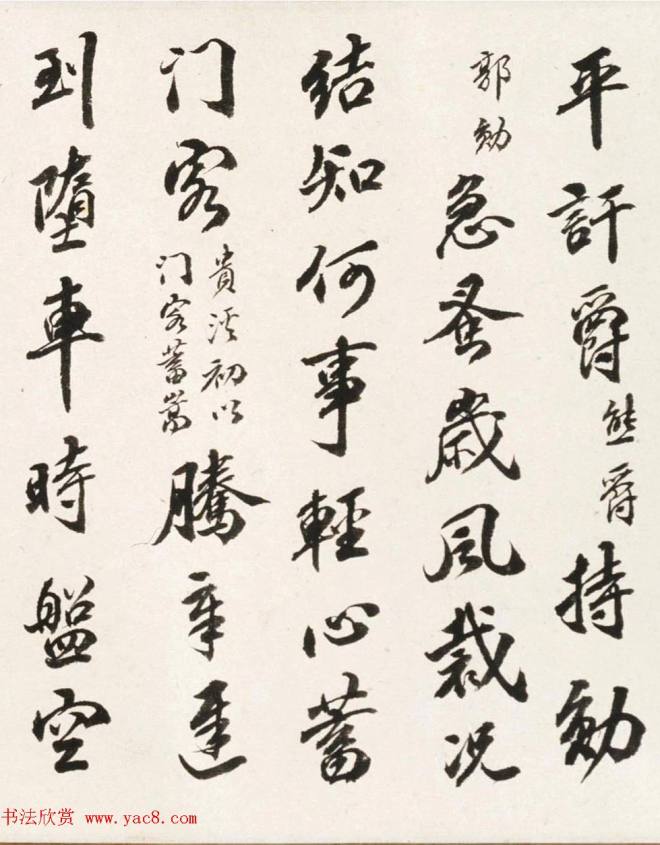 平訐爵熊爵持勛
郭勛急蚤歲風裁况
結知何事輕心蓄
门客貴溪初以
门客蓄嵩騰章
到墮車時盤空
书法欣赏 www.yac8.com